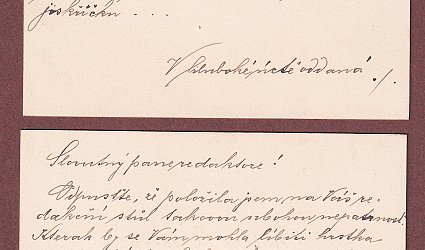 jiskřičku . . .
V hluboké úctě oddaná ./.
Slovutný pane redaktore!
Odpusťte, že položila jsem na Váš re-
dakční stůl takovou ubohou nepatrnost.
Kterak by se Vám mohla líbiti hrstka